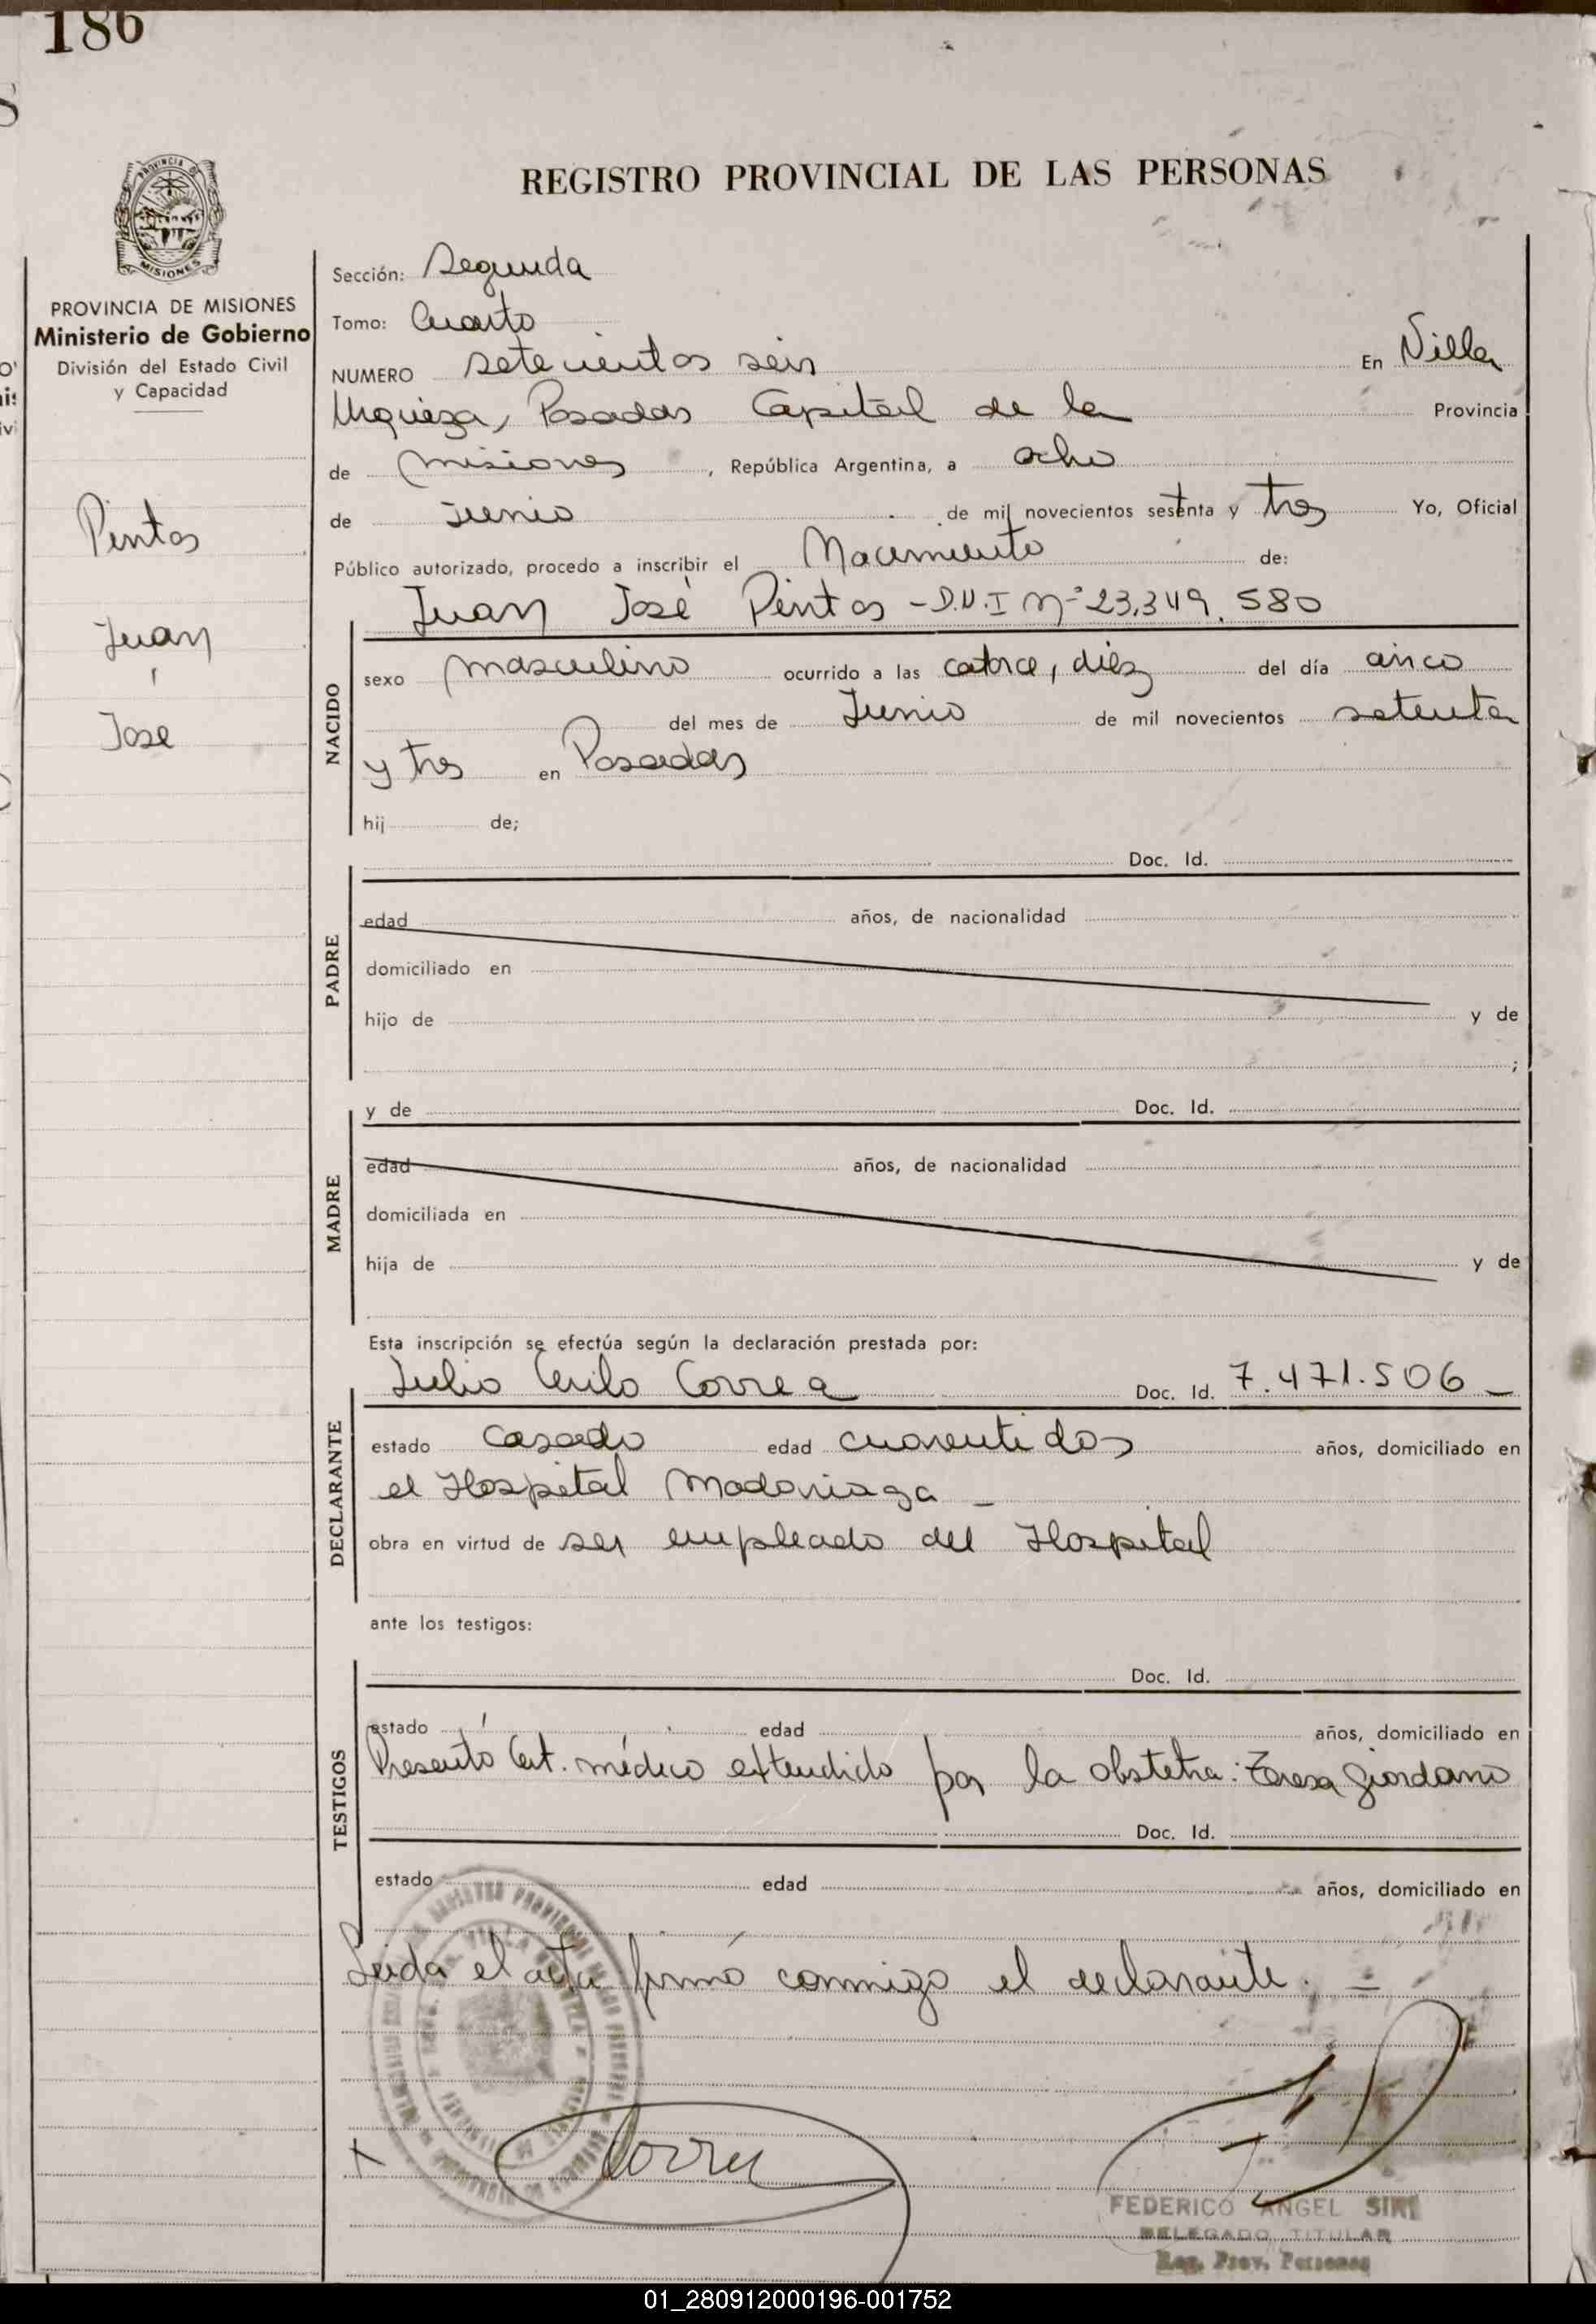 186
REGISTRO PROVINCIAL DE LAS PERSONAS
PROVINCIA
MISIONES
PROVINCIA DE MISIONES
Ministerio de Gobierno
División del Estado Civil
y Capacidad
Pintos
Juan
José
Sección: Segunda
Tomo: Cuarto
NUMERO setecientos seis En Villa
Urquiza, Posadas Capital de la Provincia
de Misiones, República Argentina, a ocho
de Junio de mil novecientos sesenta y tres Yo, Oficial
Público autorizado, procedo a inscribir el Nacimiento de:
Juan José Pintos - D.N.I Nº 23.349.580
NACIDO
sexo masculino ocurrido a las catorce, diez del día cinco
del mes de Junio de mil novecientos setenta
y tres en Posadas
hij de;
PADRE
Doc. Id.
edad años, de nacionalidad
domiciliado en
hijo de y de
;
MADRE
y de Doc. Id.
edad años, de nacionalidad
domiciliada en
hija de y de
Esta inscripción se efectúa según la declaración prestada por:
DECLARANTE
Julio Cirilo Correa Doc. Id. 7.471.506 -
estado casado edad cuarentidos años, domiciliado en
el Hospital Madariaga -
obra en virtud de ser empleado del Hospital
ante los testigos:
TESTIGOS
Doc. Id.
estado edad años, domiciliado en
Presentó Cert. médico extendido por la obstetra: Teresa Giordano
Doc. Id.
estado edad años, domiciliado en
Leida el acta firmó conmigo el declarante. =
Correa
FEDERICO ANGEL SIRI
DELEGADO TITULAR
Reg. Prov. Personas
01_280912000196-001752